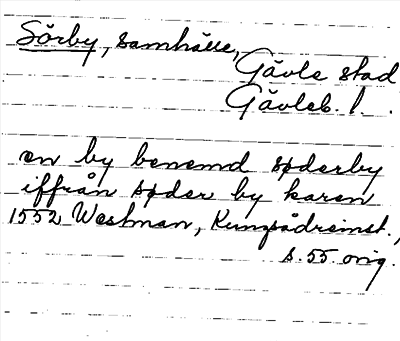 Sörby, samhälle,
Gävle stad
Gävleb. l.
en by benemd søderby
iffrån søder by karen
1552 Westman, Kungsådreinst.,
s. 55. orig.